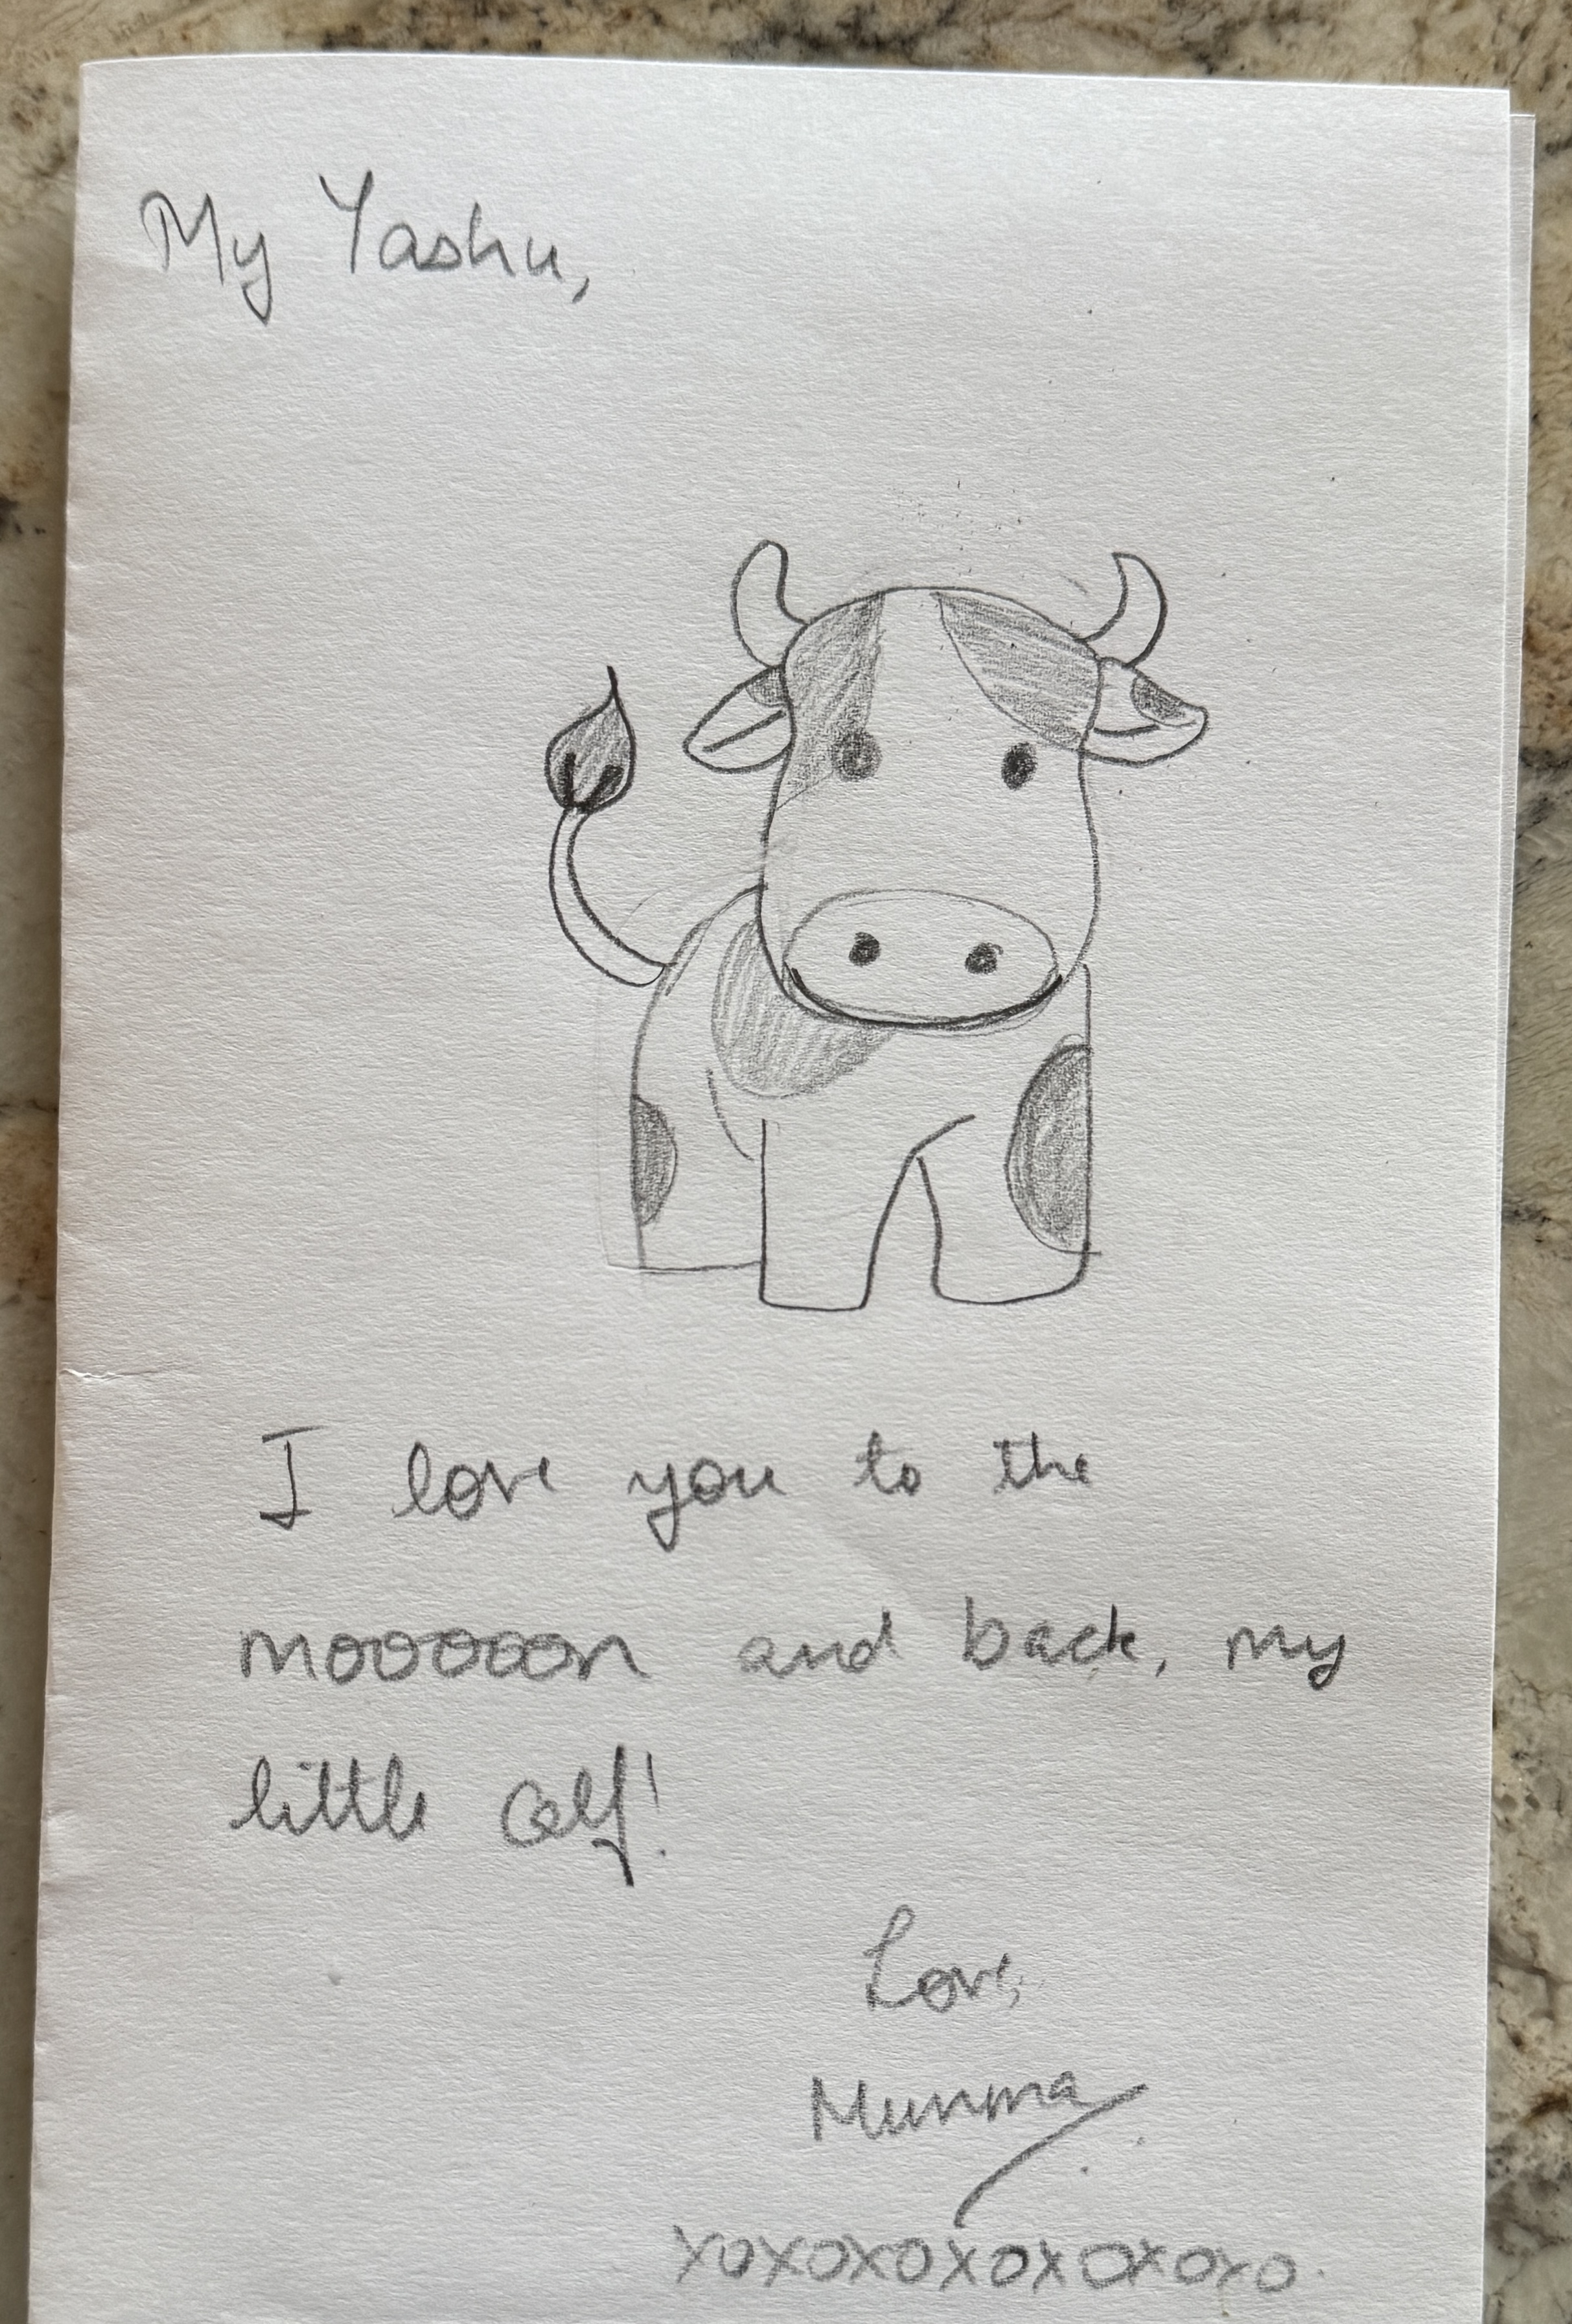 My Yashu,
I love you to the
mooooon and back, my
little calf!
Love,
Mumma
xoxoxoxoxoxoxoxo.